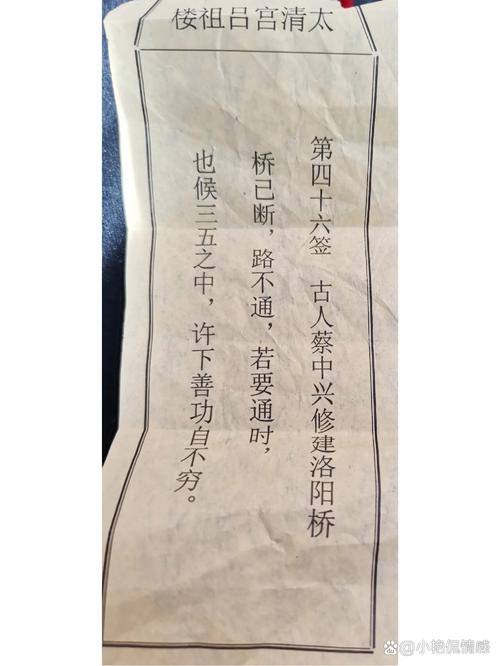 太清宫吕祖楼
第四十六签 古人蔡中兴修建洛阳桥
桥已断，路不通，若要通时，
也候三五之中，许下善功自不穷。
@小艳侃情感